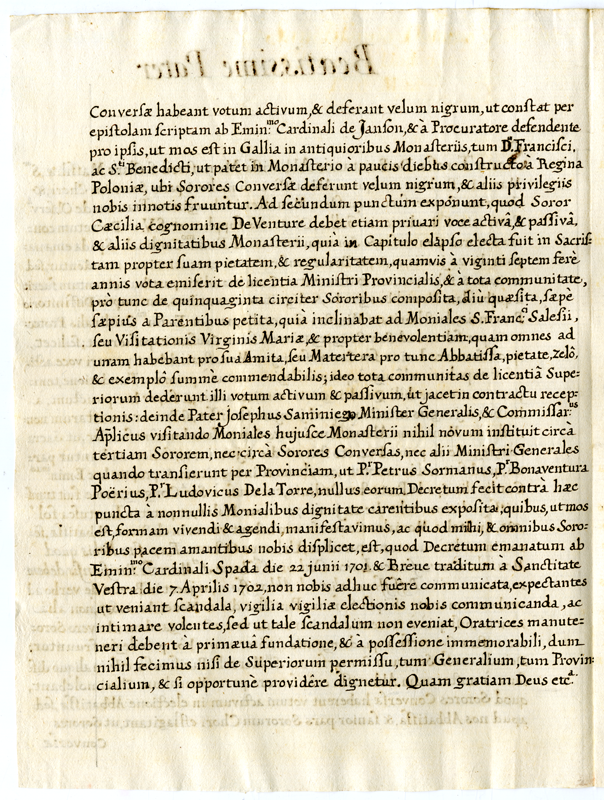 Conversæ habeant votum activum, & deferant velum nigrum, ut constat per
epistolam scriptam ab Emin.mo Cardinali de Janson, & à Procuratore defendente
pro ipsis, ut mos est in Gallia in antiquioribus Monasteriis, tum Francisci,
ac S.ti Benedicti, ut patet in Monasterio à paucis diebus constructo à Regina
Poloniæ, ubi Sorores Conversæ deferunt velum nigrum, & aliis privilegiis
nobis innotis fruuntur. Ad secundum punctum exponunt, quod Soror
Cæcilia, cognomine DeVenture debet etiam privari voce activâ, & passivâ,
& aliis dignitatibus Monasterii, quia in Capitulo elapso electa fuit in Sacris=
tam propter suam pietatem, & regularitatem, quamvis à viginti septem ferè
annis vota emiserit de licentia Ministri Provincialis, & à tota communitate,
pro tunc de quinquaginta circiter Sororibus composita, diù quæsita, sæpè
sæpius à Parentibus petita, quia inclinabat ad Moniales S. Franc.ci Salesii,
seu Visitationis Virginis Mariæ, & propter benevolentiam, quam omnes ad
unam habebant pro sua Amita, seu Matertera pro tunc Abbatissa, pietate, zelô,
& exemplô summè commendabilis; ideo tota communitas de licentiâ Supe=
riorum dederunt illi votum activum & passivum, ut jacet in contractu recep=
tionis: deinde Pater Josephus Saminiego Minister Generalis, & Commissar.us
Aplicus visitando Moniales hujusce Monasterii nihil nôvum instituit circà
tertiam Sororem, nec circà Sorores Conversas, nec alii Ministri Generales
quando transierunt per Provinciam, ut P.r Petrus Sormanus, P.r Bonaventura
Poërius, P.r Ludovicus DelaTorre, nullus eorum Decretum fecit contrà hæc
puncta à nonnullis Monialibus dignitate carentibus exposita, quibus, ut mos
est, formam vivendi & agendi, manifestavimus, ac quod mihi, & omnibus Soro=
ribus pacem amantibus nobis displicet, est, quod Decretum emanatum ab
Emin.mo Cardinali Spada die 22 junii 1701. & Breue traditum à Sanctitate
Vestra die 7. Aprilis 1702, non nobis adhuc fuêre communicata, expectantes
ut veniant scandala, vigilia vigiliæ electionis nobis communicanda, ac
intimare volentes, sed ut tale scandalum non eveniat, Oratrices manute=
neri debent à primævâ fundatione, & à possessione immemorabili, dum
nihil fecimus nisi de Superiorum permissu, tum Generalium, tum Provin=
cialium, & si opportunè providêre dignetur. Quam gratiam Deus etc.a